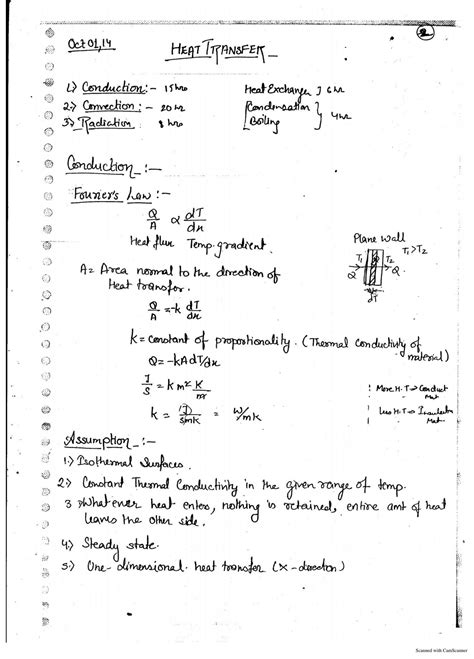 2
Oct 01, 14
HEAT TRANSFER
1.) Conduction :- 15 hrs
Heat Exchanger } 6 hr
2.) Convection :- 20 hr
[Condensation
Boiling } 4hr
3.) Radiation 8 hrs
Conduction :-
Fourier's Law :-
Q/A ∝ dT/dx
Heat flux Temp. gradient.
Plane wall
T1 > T2
T1 T2
Q Q
dT
A = Area normal to the direction of
Heat transfer.
Q/A = -k dT/dx
k = constant of proportionality. (Thermal conductivity of
material)
Q = -kA dT/dx
J/S = k m² K/m
More H.T → Conduct
Mat
k = J/smk = W/mk
Less H.T → Insulator
Mat.
Assumption :-
1.) Isothermal Surfaces.
2) Constant Thermal Conductivity in the given range of temp.
3 > Whatever heat enters, nothing is retained, entire amt of heat
leaves the other side.
4.) Steady state.
5.) One-dimensional heat transfer (x-direction)
Scanned with CamScanner